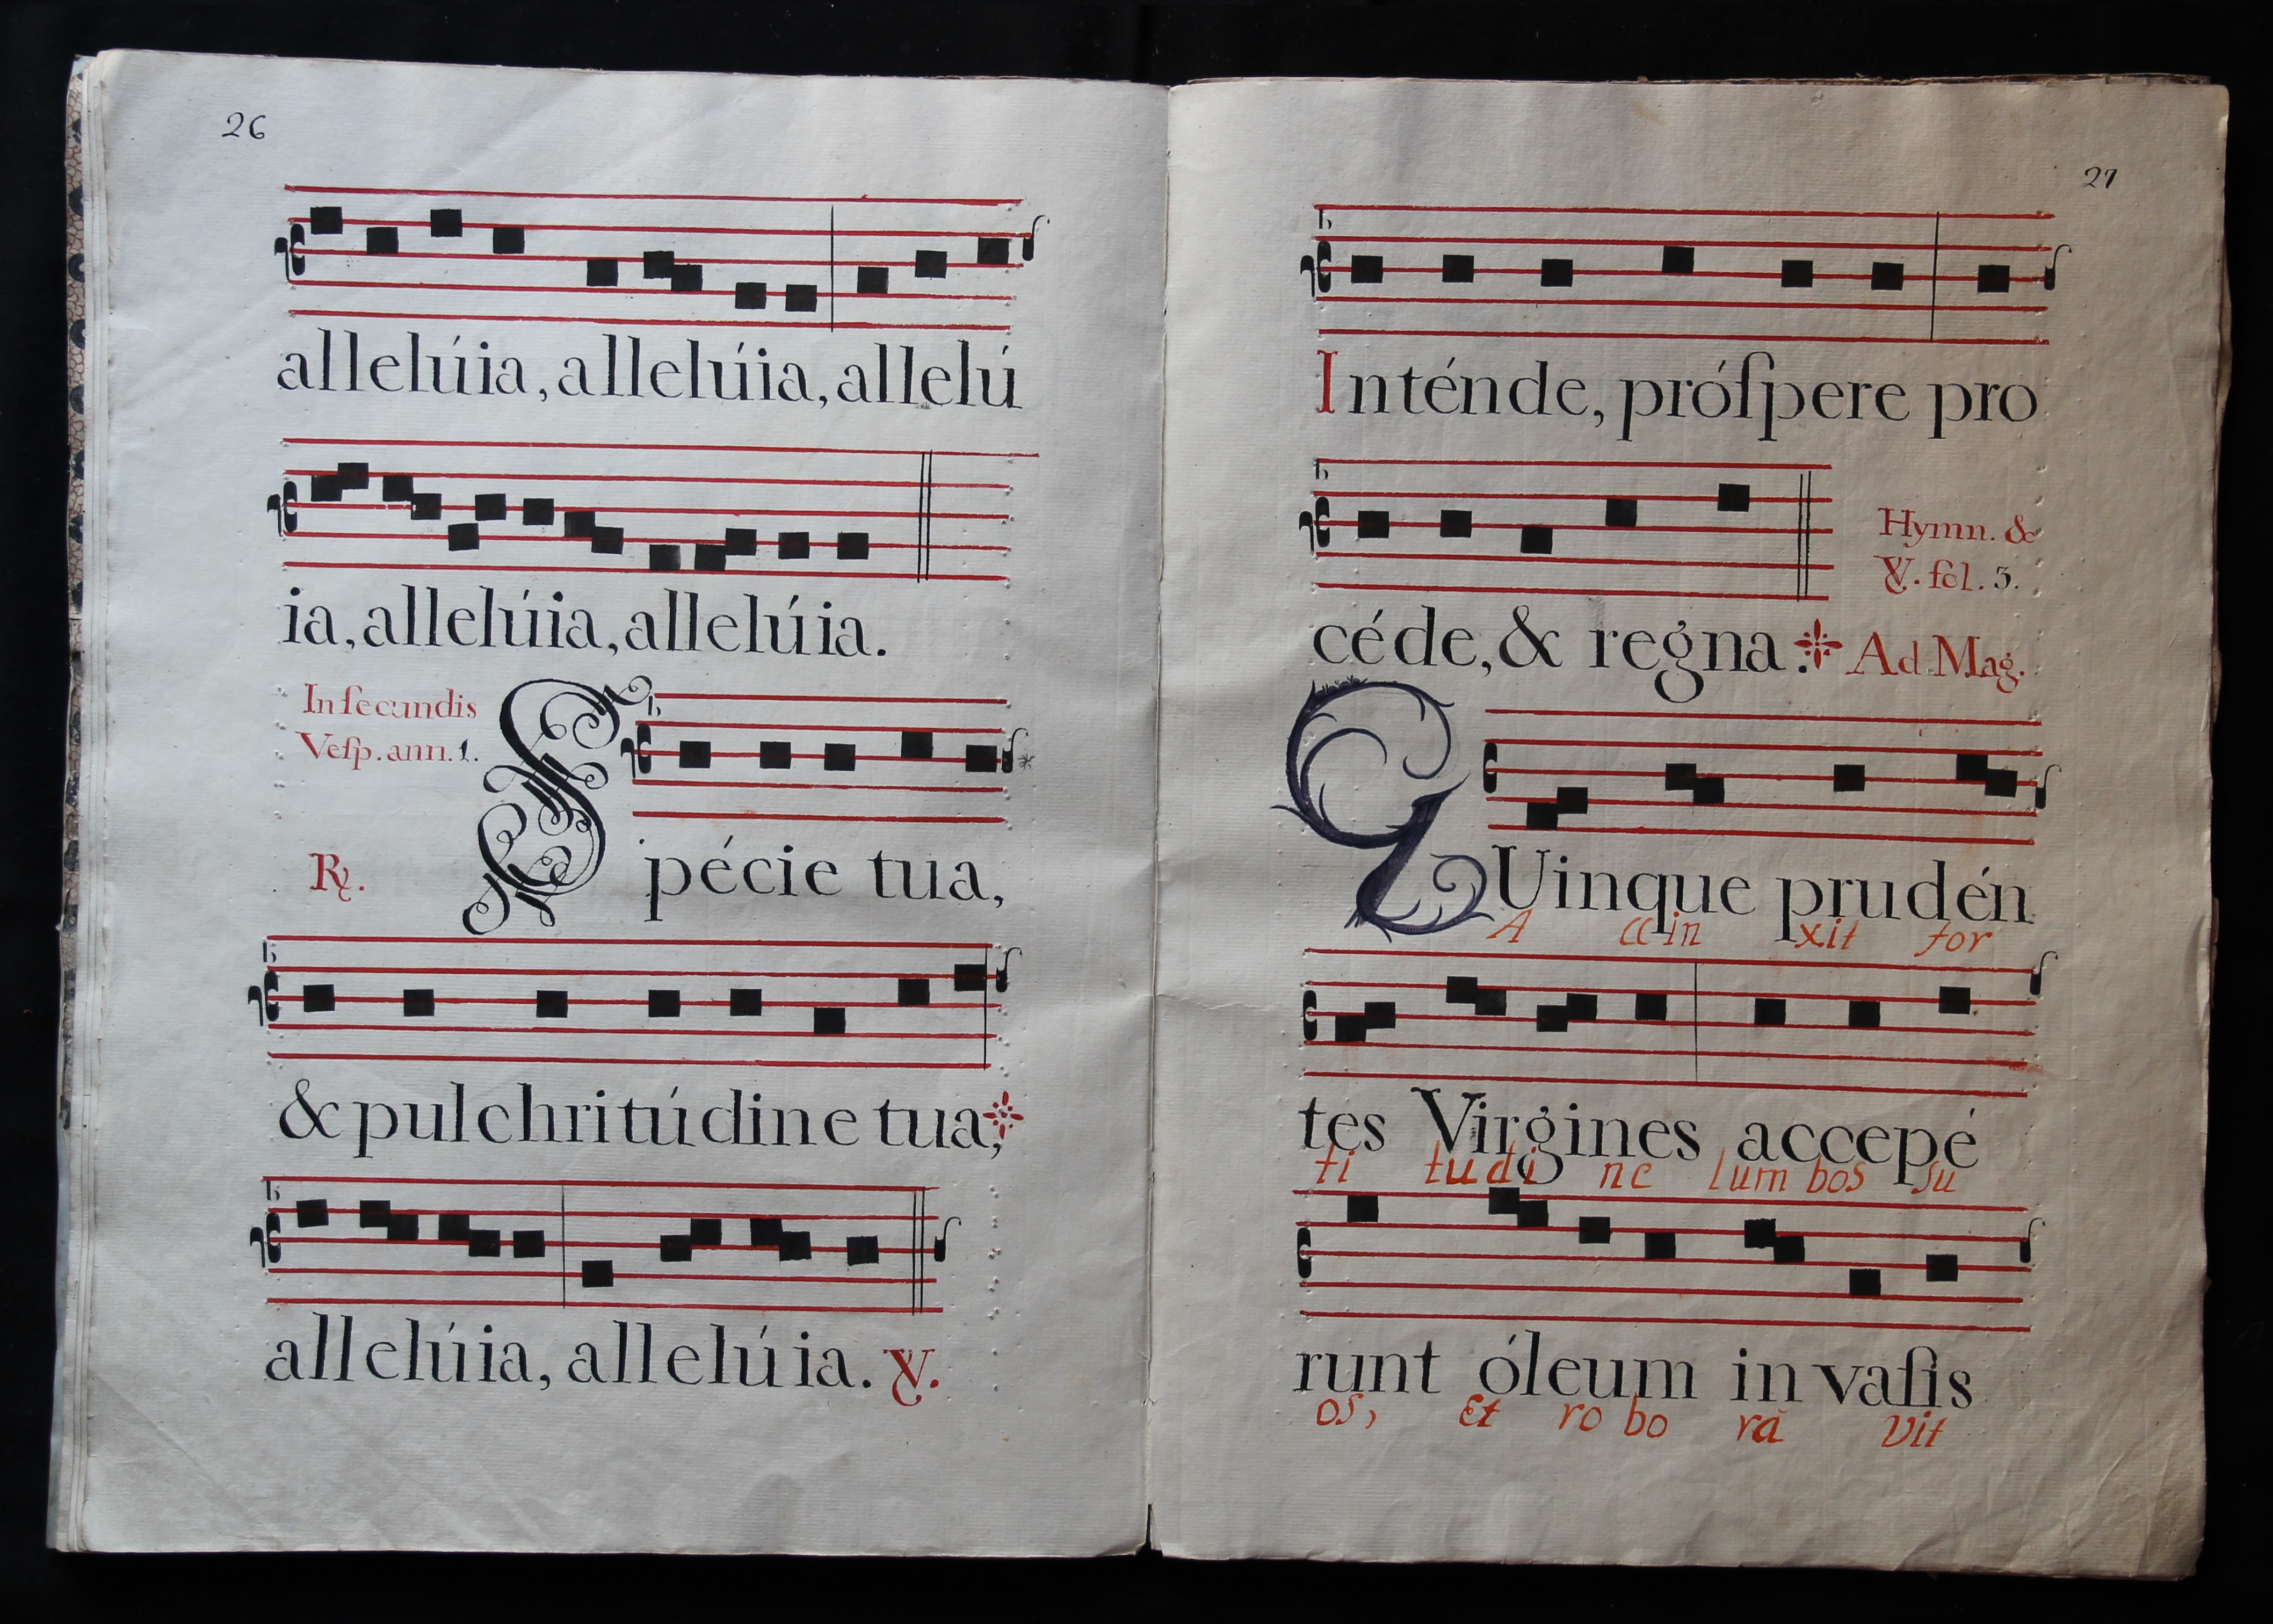 26
allelúia, allelúia, allelú
ia, allelúia, allelúia.
In ſecundis
Veſp. ann. 1.
℟.
Specie tua,
& pulchritúdine tua,
allelúia, allelúia. ℣.
27
Inténde, próſpere pro
céde, & regna:
Hymn. &
℣. fol. 3.
Ad Mag.
QUinque prudén
A ccin xit for
tes Virgines accepé
ti tudi ne lum bos su
runt óleum in vaſis
os, Et ro bo rà vit